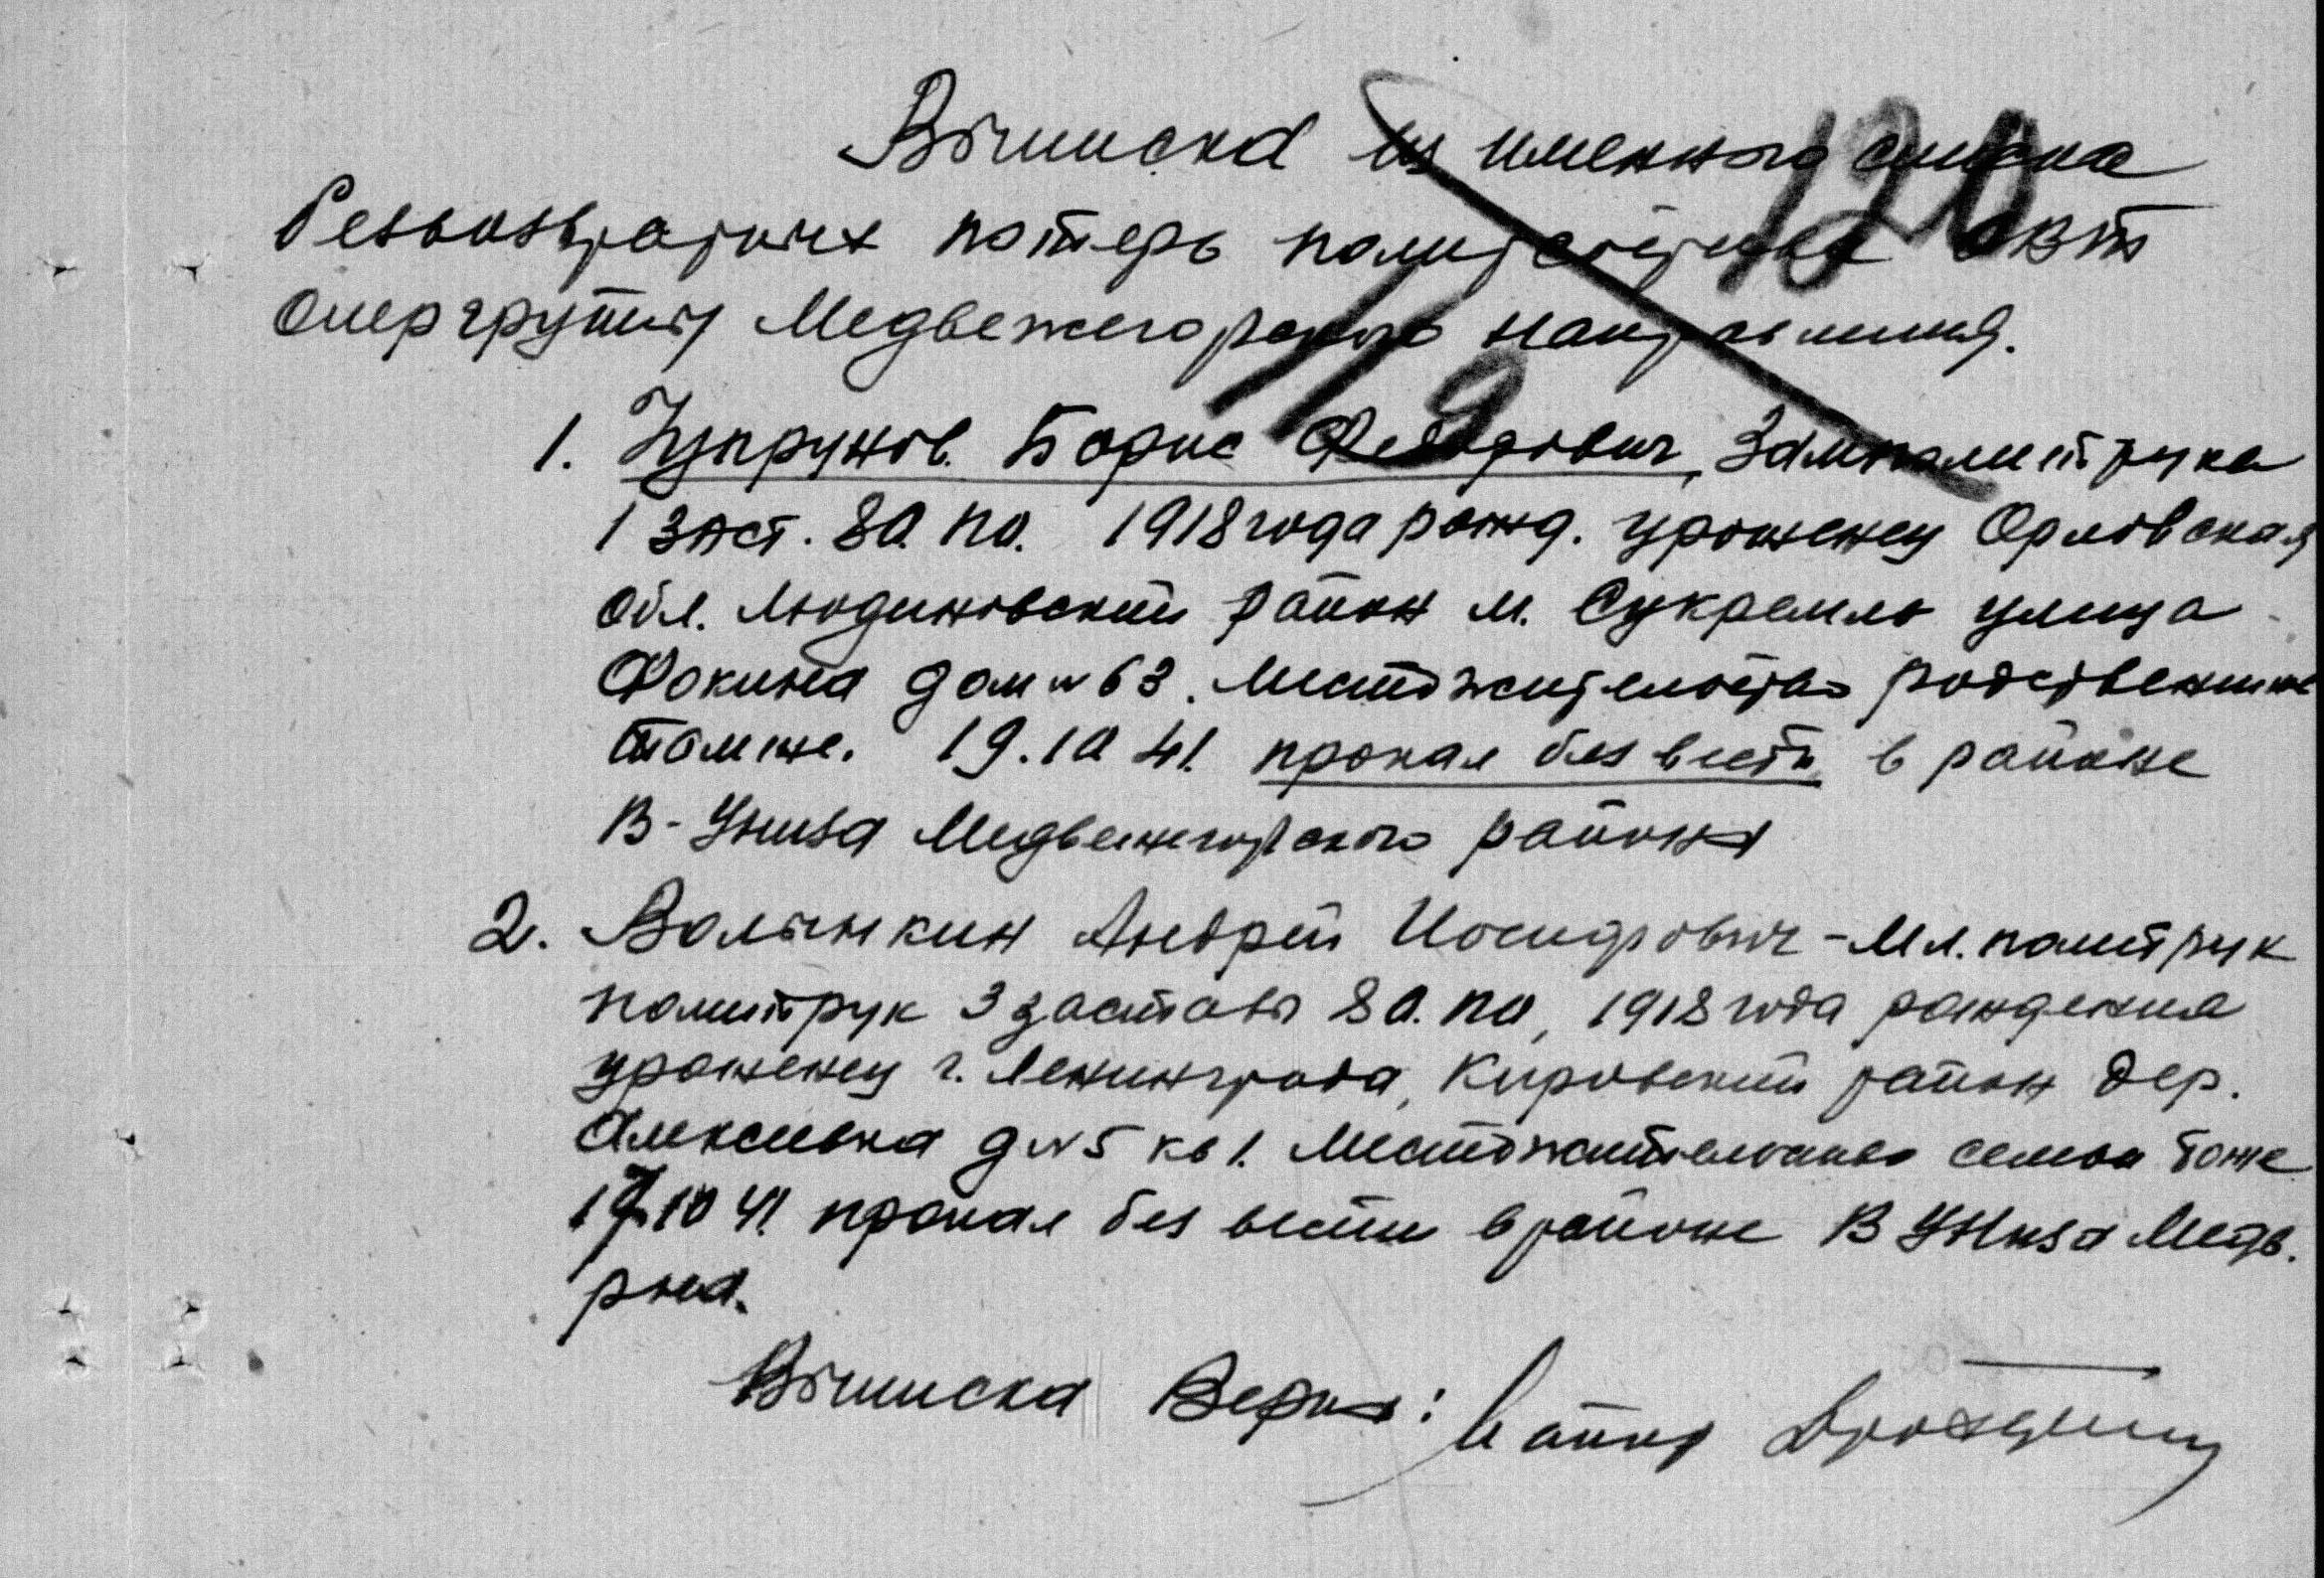 Выписка из именного списка
безвозвратных потерь политсостава ОВТ
Опергруппы Медвежегорского направления.
120
119
1. Чупрунов. Борис Федорович, Замполитрука
1 заст. 80. ПО. 1918 года рожд. уроженец Орловская
обл. Людиновский район м. Сукремль улица
Фокина дом № 63. Местожительство родственников
там же. 19.10 41. пропал без вести, в районе
В-Униза Медвежегорского района
2. Волынкин Андрей Иосифович - Мл. политрук
политрук 3 заставы 80. ПО, 1918 года рождения
уроженец г. Ленинграда, Кировский район дер.
Алексеевка д № 5 кв 1. Местожительство семьи тоже
19.10 41 пропал без вести в районе В Униза Медв.
рна.
Выписка Верна: